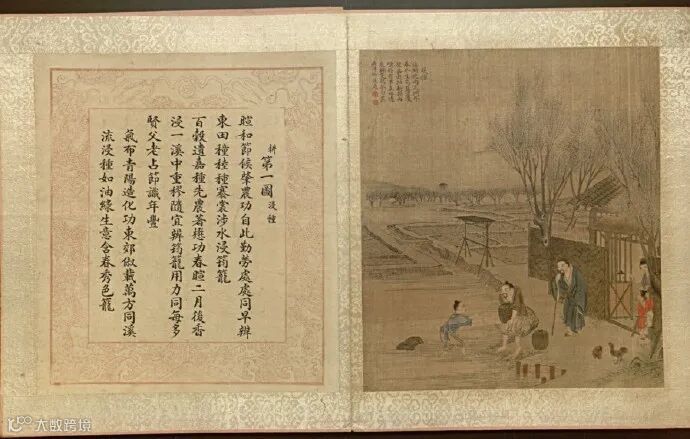 耕 第一圖 浸種
暄和節候肇農功自此勤勞處處同早辨
東田穜稑種褰裳涉水浸筠籠
百穀遺嘉種先農著懋功春暄二月後香
浸一溪中重穋隨宜辨筠籠用力同每多
賢父老占節識年豐
氣布青陽造化功東郊俶載萬方同溪
流浸種如油綠生意含春秀色籠
浸種
大数跨境